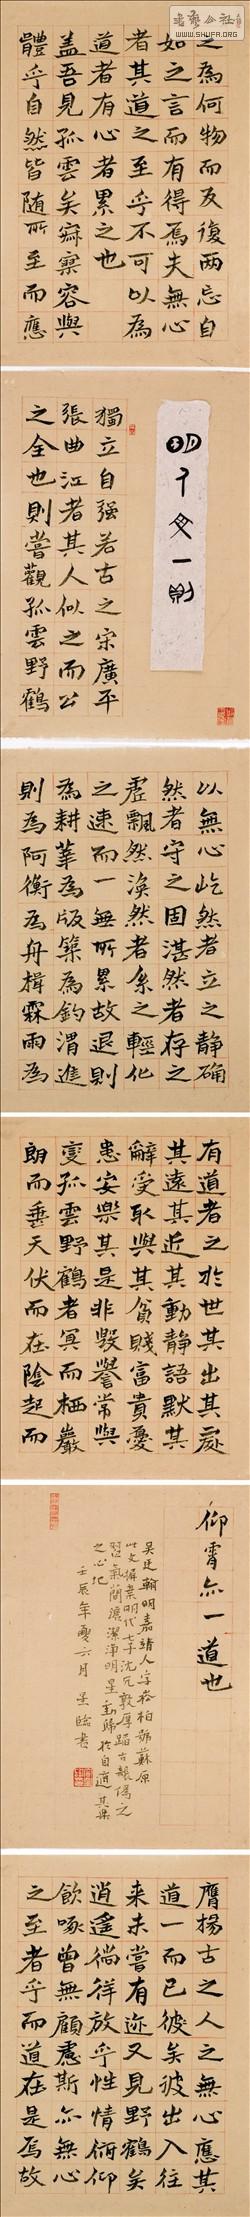 建藝公社
WWW.SHUFA.ORG
之為何物而反復兩忘自
如之言而有得焉夫無心
者其道之至乎不可以為
道者有心者累之也
蓋吾見孤雲矣寂寞容與
體乎自然皆随所至而應
明人文一則
獨立自强若古之宋廣平
張曲江者其人似之而公
之全也則嘗觀孤雲野鶴
以無心屹然者立之静確
然者守之固湛然者存之
虛飄然渙然者系之輕化
之速而一無所累故退則
為耕莘為版築為釣渭進
則為阿衡為舟楫霖雨為
有道者之於世其出其處
其遠其近其動静語默其
辭受取與其貧賤富貴憂
患安樂其是非毀譽常與
變孤雲野鶴者冥而栖巖
朗而垂天伏而在陰起而
仰霄亦一道也
吴廷翰明嘉靖人字崧柏號蘇原
此文摒棄明代七子沈冗敦厚蹈古襲偽之
習氣簡澹潔淨明星歸於自適其樂
之心地
壬辰年夏六月臨書
鷹揚古之人之無心應其
道一而已彼矣彼出入往
来未嘗有迹又見野鶴矣
逍遥徜徉放乎性情俯仰
飲啄曾無顧慮斯亦無心
之至者乎而道在是焉故